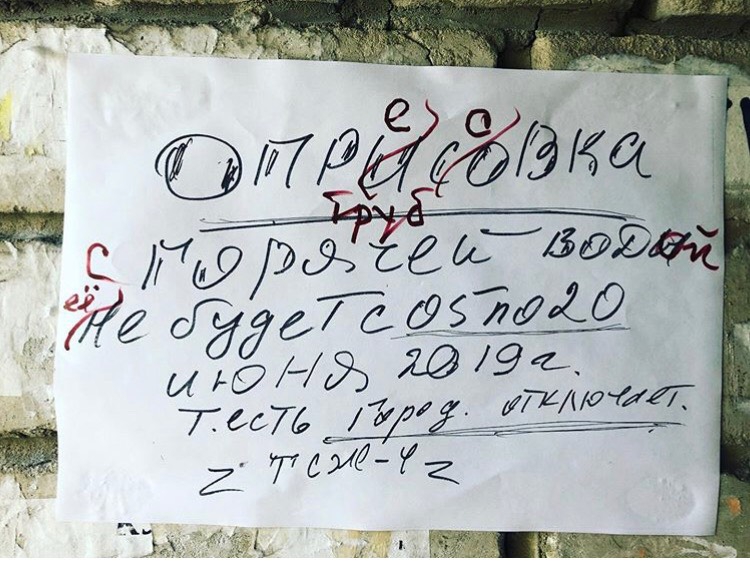 е
ОПРИСОВКА
труб
С Горячей водой
её Не будет с 05 по 20
июня 2019 г.
т.есть Город. отключает.
z ТСЖ-4 z